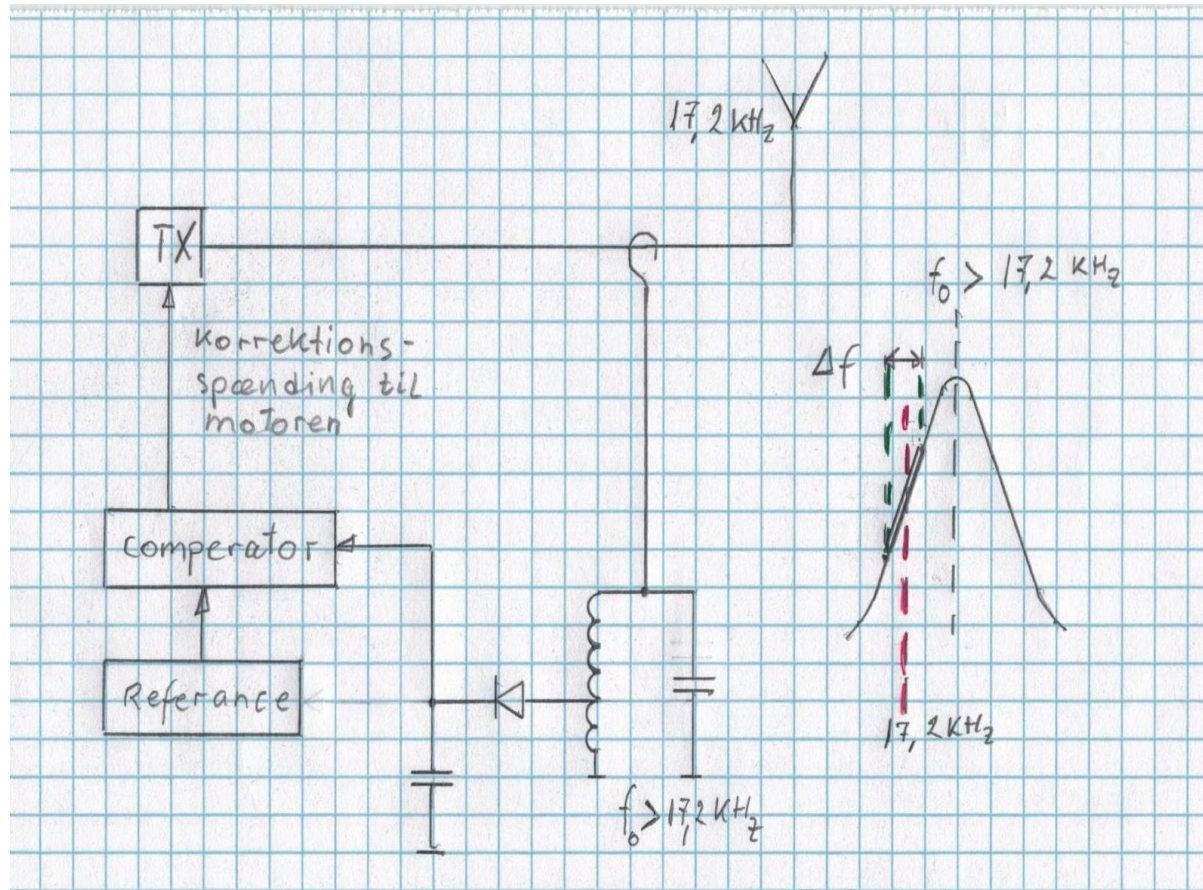 17,2 KHz
TX
f₀ > 17,2 KHz
Korrektions-
spænding til
motoren
Δf
Comperator
Referance
17,2 KHz
f₀ > 17,2 KHz